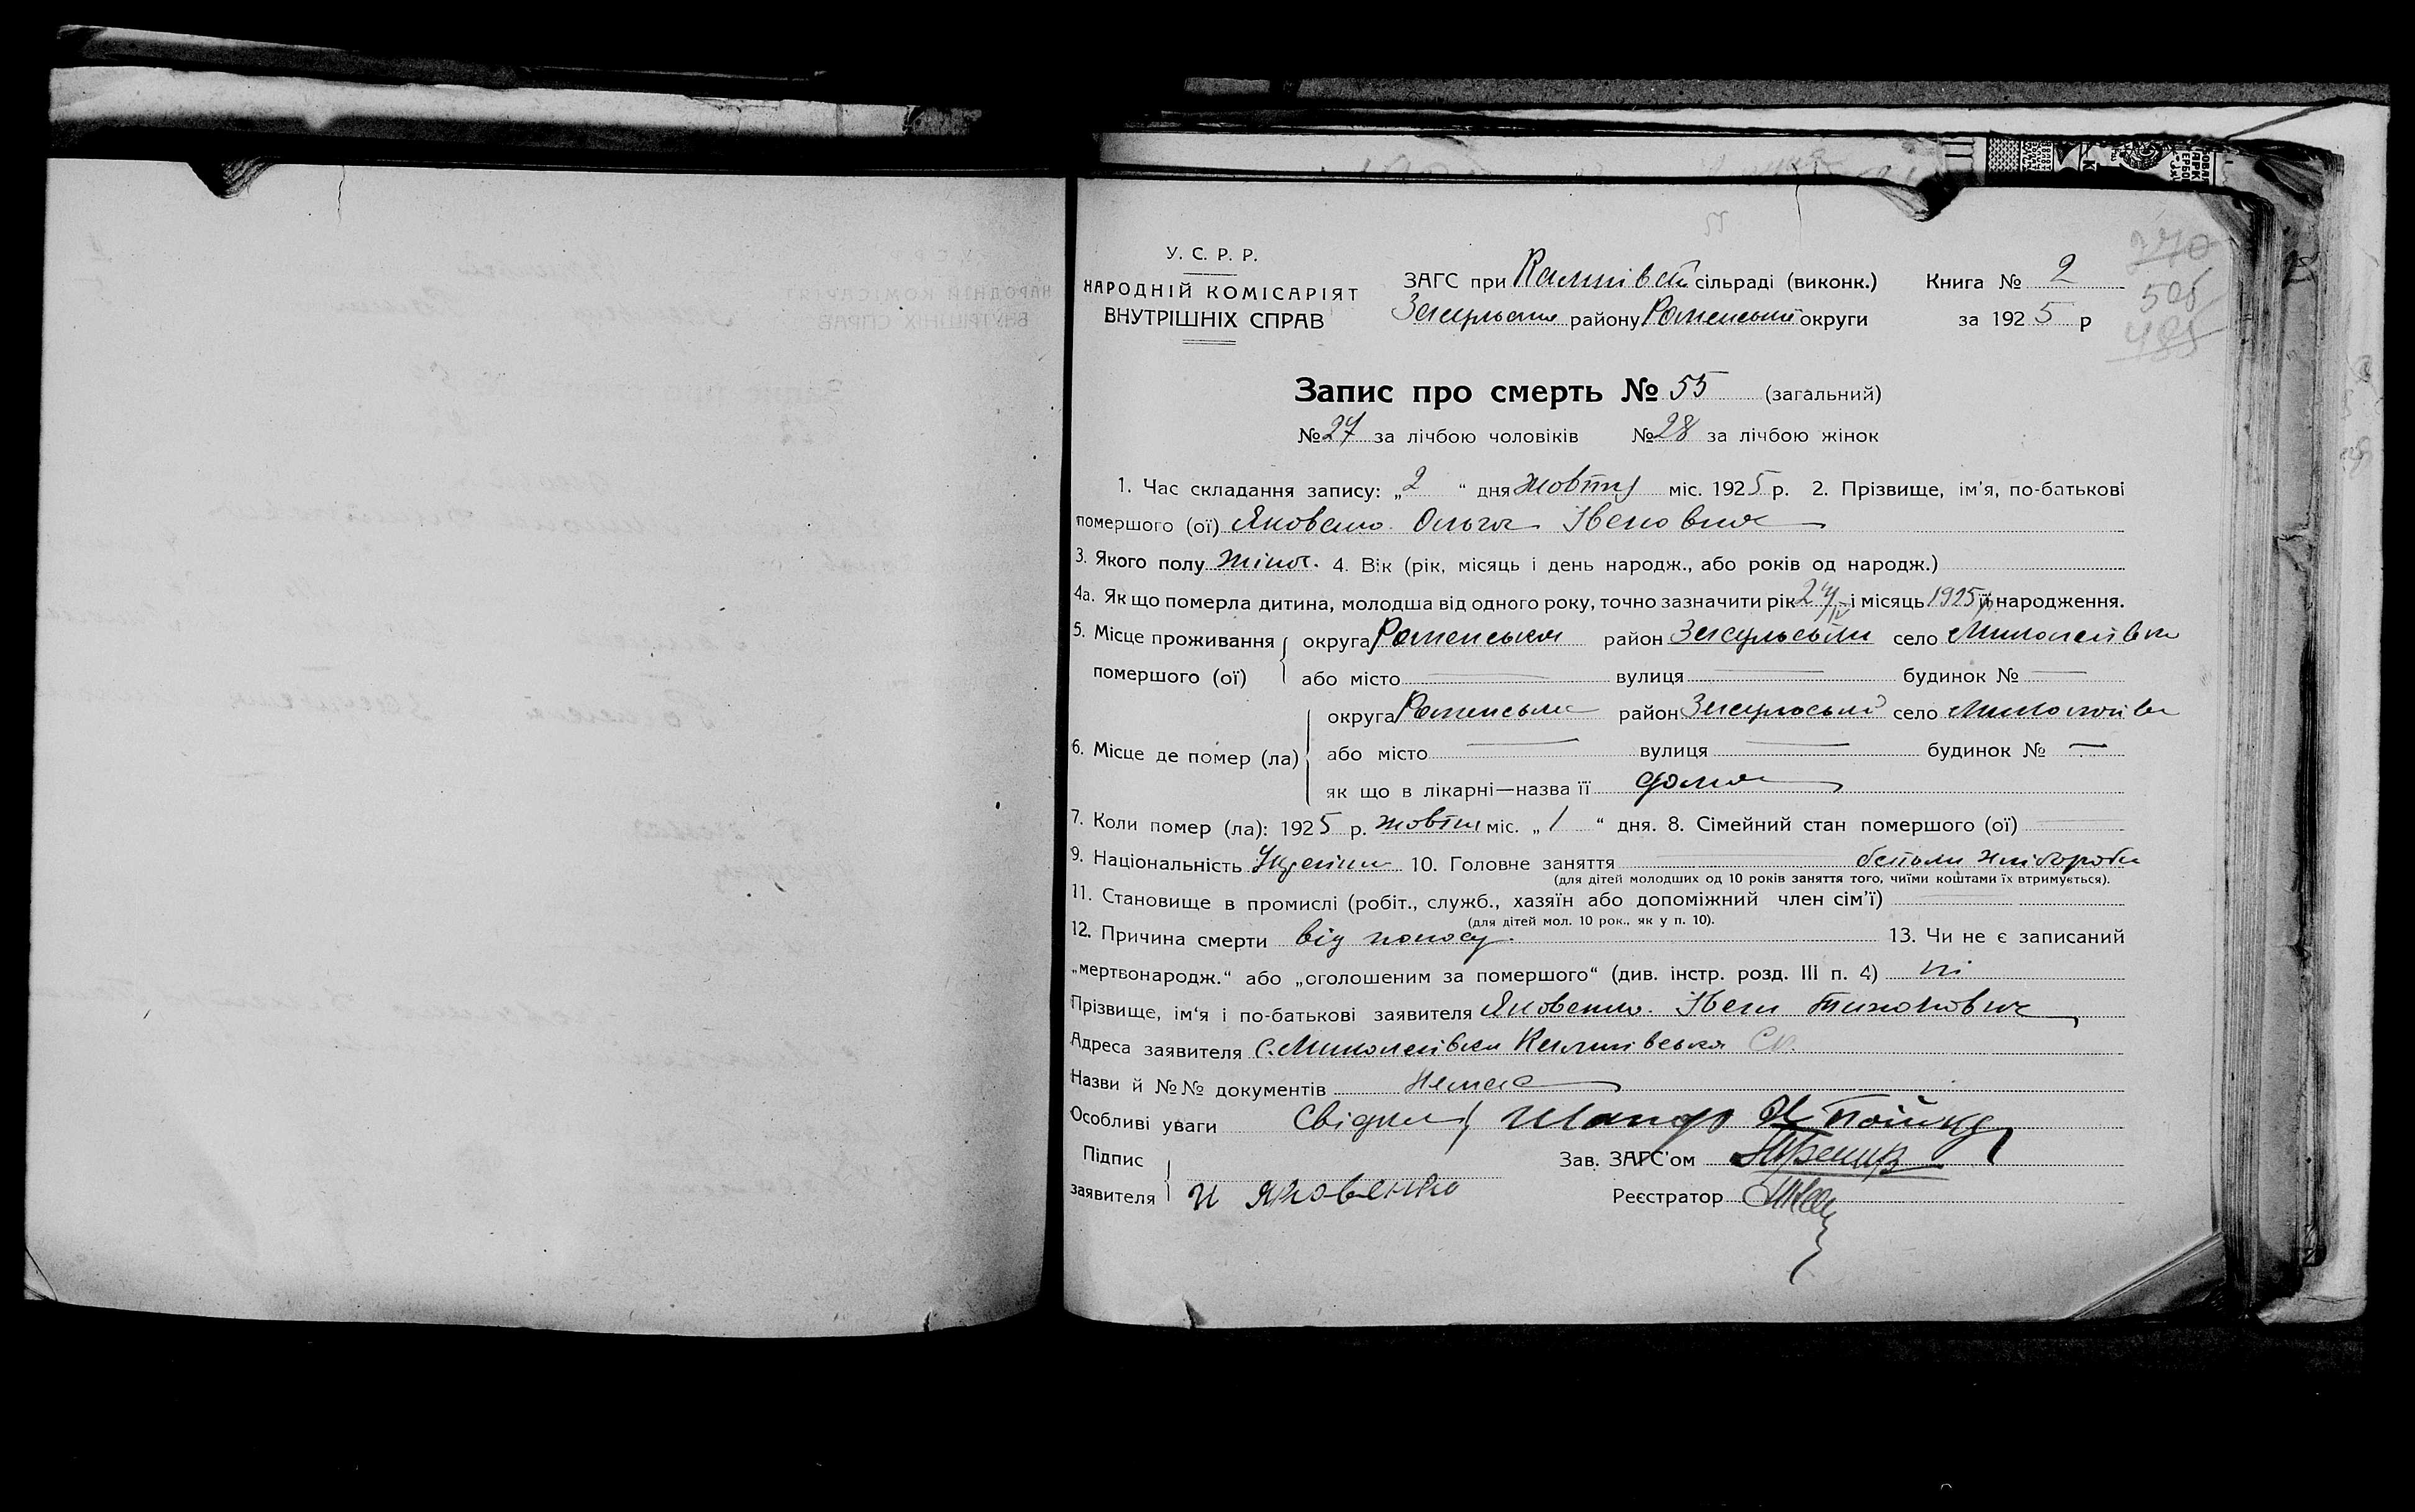 55
У. С. Р. Р.
НАРОДНІЙ КОМІСАРІЯТ
ВНУТРІШНІХ СПРАВ
ЗАГС при сільраді (виконк.)
Засульськ району Роменської округи
Книга № 2
за 1925 р
270
505
485
Запис про смерть № 55 (загальний)
№ 27 за лічбою чоловіків № 28 за лічбою жінок
1. Час складання запису: „2“ дня жовтня міс. 1925 р. 2. Прізвище, ім'я, по-батькові
помершого (ої) Яковенко Ольга Івановна
3. Якого полу жіноч. 4. Вік (рік, місяць і день народж., або років од народж.)
4а. Як що померла дитина, молодша від одного року, точно зазначити рік 24/IV і місяць 1925 її народження.
5. Місце проживання помершого (ої) округа Роменська район Засульськи село Миколаївка
або місто — вулиця — будинок № —
6. Місце де помер (ла) округа Роменська район Засульський село Миколаївка
або місто — вулиця — будинок № —
як що в лікарні—назва її дома
7. Коли помер (ла): 1925 р. жовтня міс. „1“ дня. 8. Сімейний стан помершого (ої) —
9. Національність Україн 10. Головне заняття — батьки хлібороби
(для дітей молодших од 10 років заняття того, чиїми коштами їх втримується).
11. Становище в промислі (робіт., служб., хазяїн або допоміжний член сім'ї) —
(для дітей мол. 10 рок., як у п. 10).
12. Причина смерти від поносу. 13. Чи не є записаний
„мертвонародж.“ або „оголошеним за помершого“ (див. інстр. розд. III п. 4) ні
Прізвище, ім'я і по-батькові заявителя Яковенко Іван Тихонович
Адреса заявителя с. Миколаївка С.р.
Назви й №№ документів Немає
Особливі уваги Свідки
Підпис
заявителя И Яковенко
Зав. ЗАГС'ом
Реєстратор